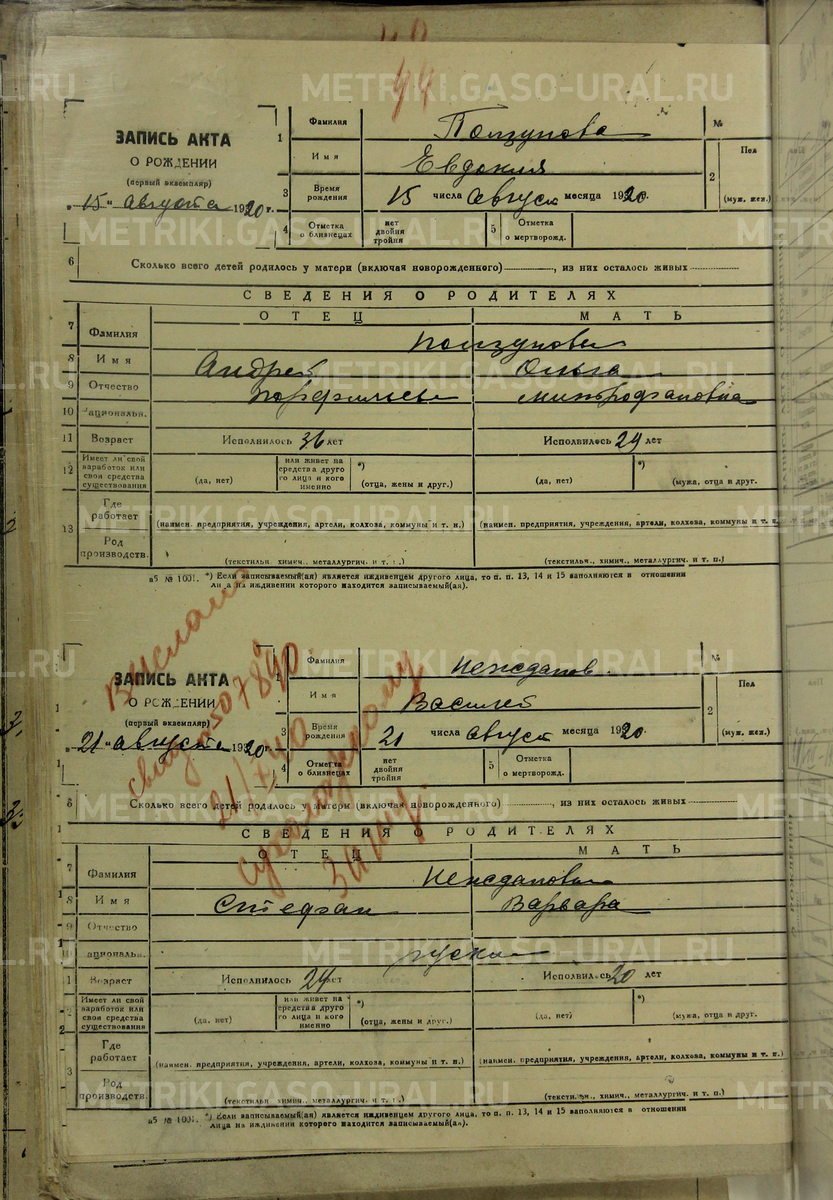 94
METRIKI.GASO-URAL.RU
ЗАПИСЬ АКТА
О РОЖДЕНИИ
(первый экземпляр)
„15" августа 1920 г.
1 Фамилия Ползунова
Имя Евдокия
3 Время рождения 15 числа август месяца 1920.
№
2 Пол
(муж. жен.)
4 Отметка о близнецах нет двойня тройня
5 Отметка о мертворожд.
METRIKI.GASO-URAL.RU
6 Сколько всего детей родилось у матери (включая новорожденного) , из них осталось живых
СВЕДЕНИЯ О РОДИТЕЛЯХ
ОТЕЦ МАТЬ
7 Фамилия Ползуновы
8 Имя Андрей Ольга
9 Отчество Митрофановна
10 Национальн.
11 Возраст Исполнилось 36 лет Исполнилось 29 лет
12 Имеет ли свой заработок или свои средства существования
(да, нет)
или живет на средства друго го лица и кого именно
*)
(отца, жены и друг.)
(да, нет)
*)
(мужа, отца и друг.
13 Где работает
(наимен. предприятия, учреждения, артели, колхоза, коммуны и т. п.) (наимен. предприятия, учреждения, артели, колхоза, коммуны и т. п.
Род производств.
(текстильн. химич., металлургич. и т. п.) (текстильн., химич., металлургич. и т. п.)
а5 № 1001. *) Если записываемый(ая) является иждивенцем другого лица, то п. п. 13, 14 и 15 заполняются в отношении
лица на иждивении которого находится записываемый(ая).
Выслано
21/X 40
Сухоложскому
Загсу.
METRIKI.GASO-URAL.RU
ЗАПИСЬ АКТА
О РОЖДЕНИИ
(первый экземпляр)
„21" августа 1920 г.
1 Фамилия Нежданов
Имя Василей
3 Время рождения 21 числа август месяца 1920.
№
2 Пол
(муж. жен.)
4 Отметка о близнецах нет двойня тройня
5 Отметка о мертворожд.
METRIKI.GASO-URAL.RU
6 Сколько всего детей родилось у матери (включая новорожденного) , из них осталось живых
СВЕДЕНИЯ О РОДИТЕЛЯХ
ОТЕЦ МАТЬ
7 Фамилия Неждановы
8 Имя Стефан Варвара
9 Отчество
10 Национальн.
Возраст Исполнилось 24 лет Исполнилось 20 лет
Имеет ли свой заработок или свои средства существования
(да, нет)
или живет на средства друго го лица и кого именно
*)
(отца, жены и друг.)
(да, нет)
*)
(мужа, отца и друг.)
3 Где работает
(наимен. предприятия, учреждения, артели, колхоза, коммуны и т. п.) (наимен. предприятия, учреждения, артели, колхоза, коммуны и т. п.)
Род производств.
(текстильн. химич., металлургич. и т. п.) (текстильн., химич., металлургич. и т. п.)
а5 № 1001. *) Если записываемый(ая) является иждивенцем другого лица, то п. п. 13, 14 и 15 заполняются в отношении
лица на иждивении которого находится записываемый(ая).